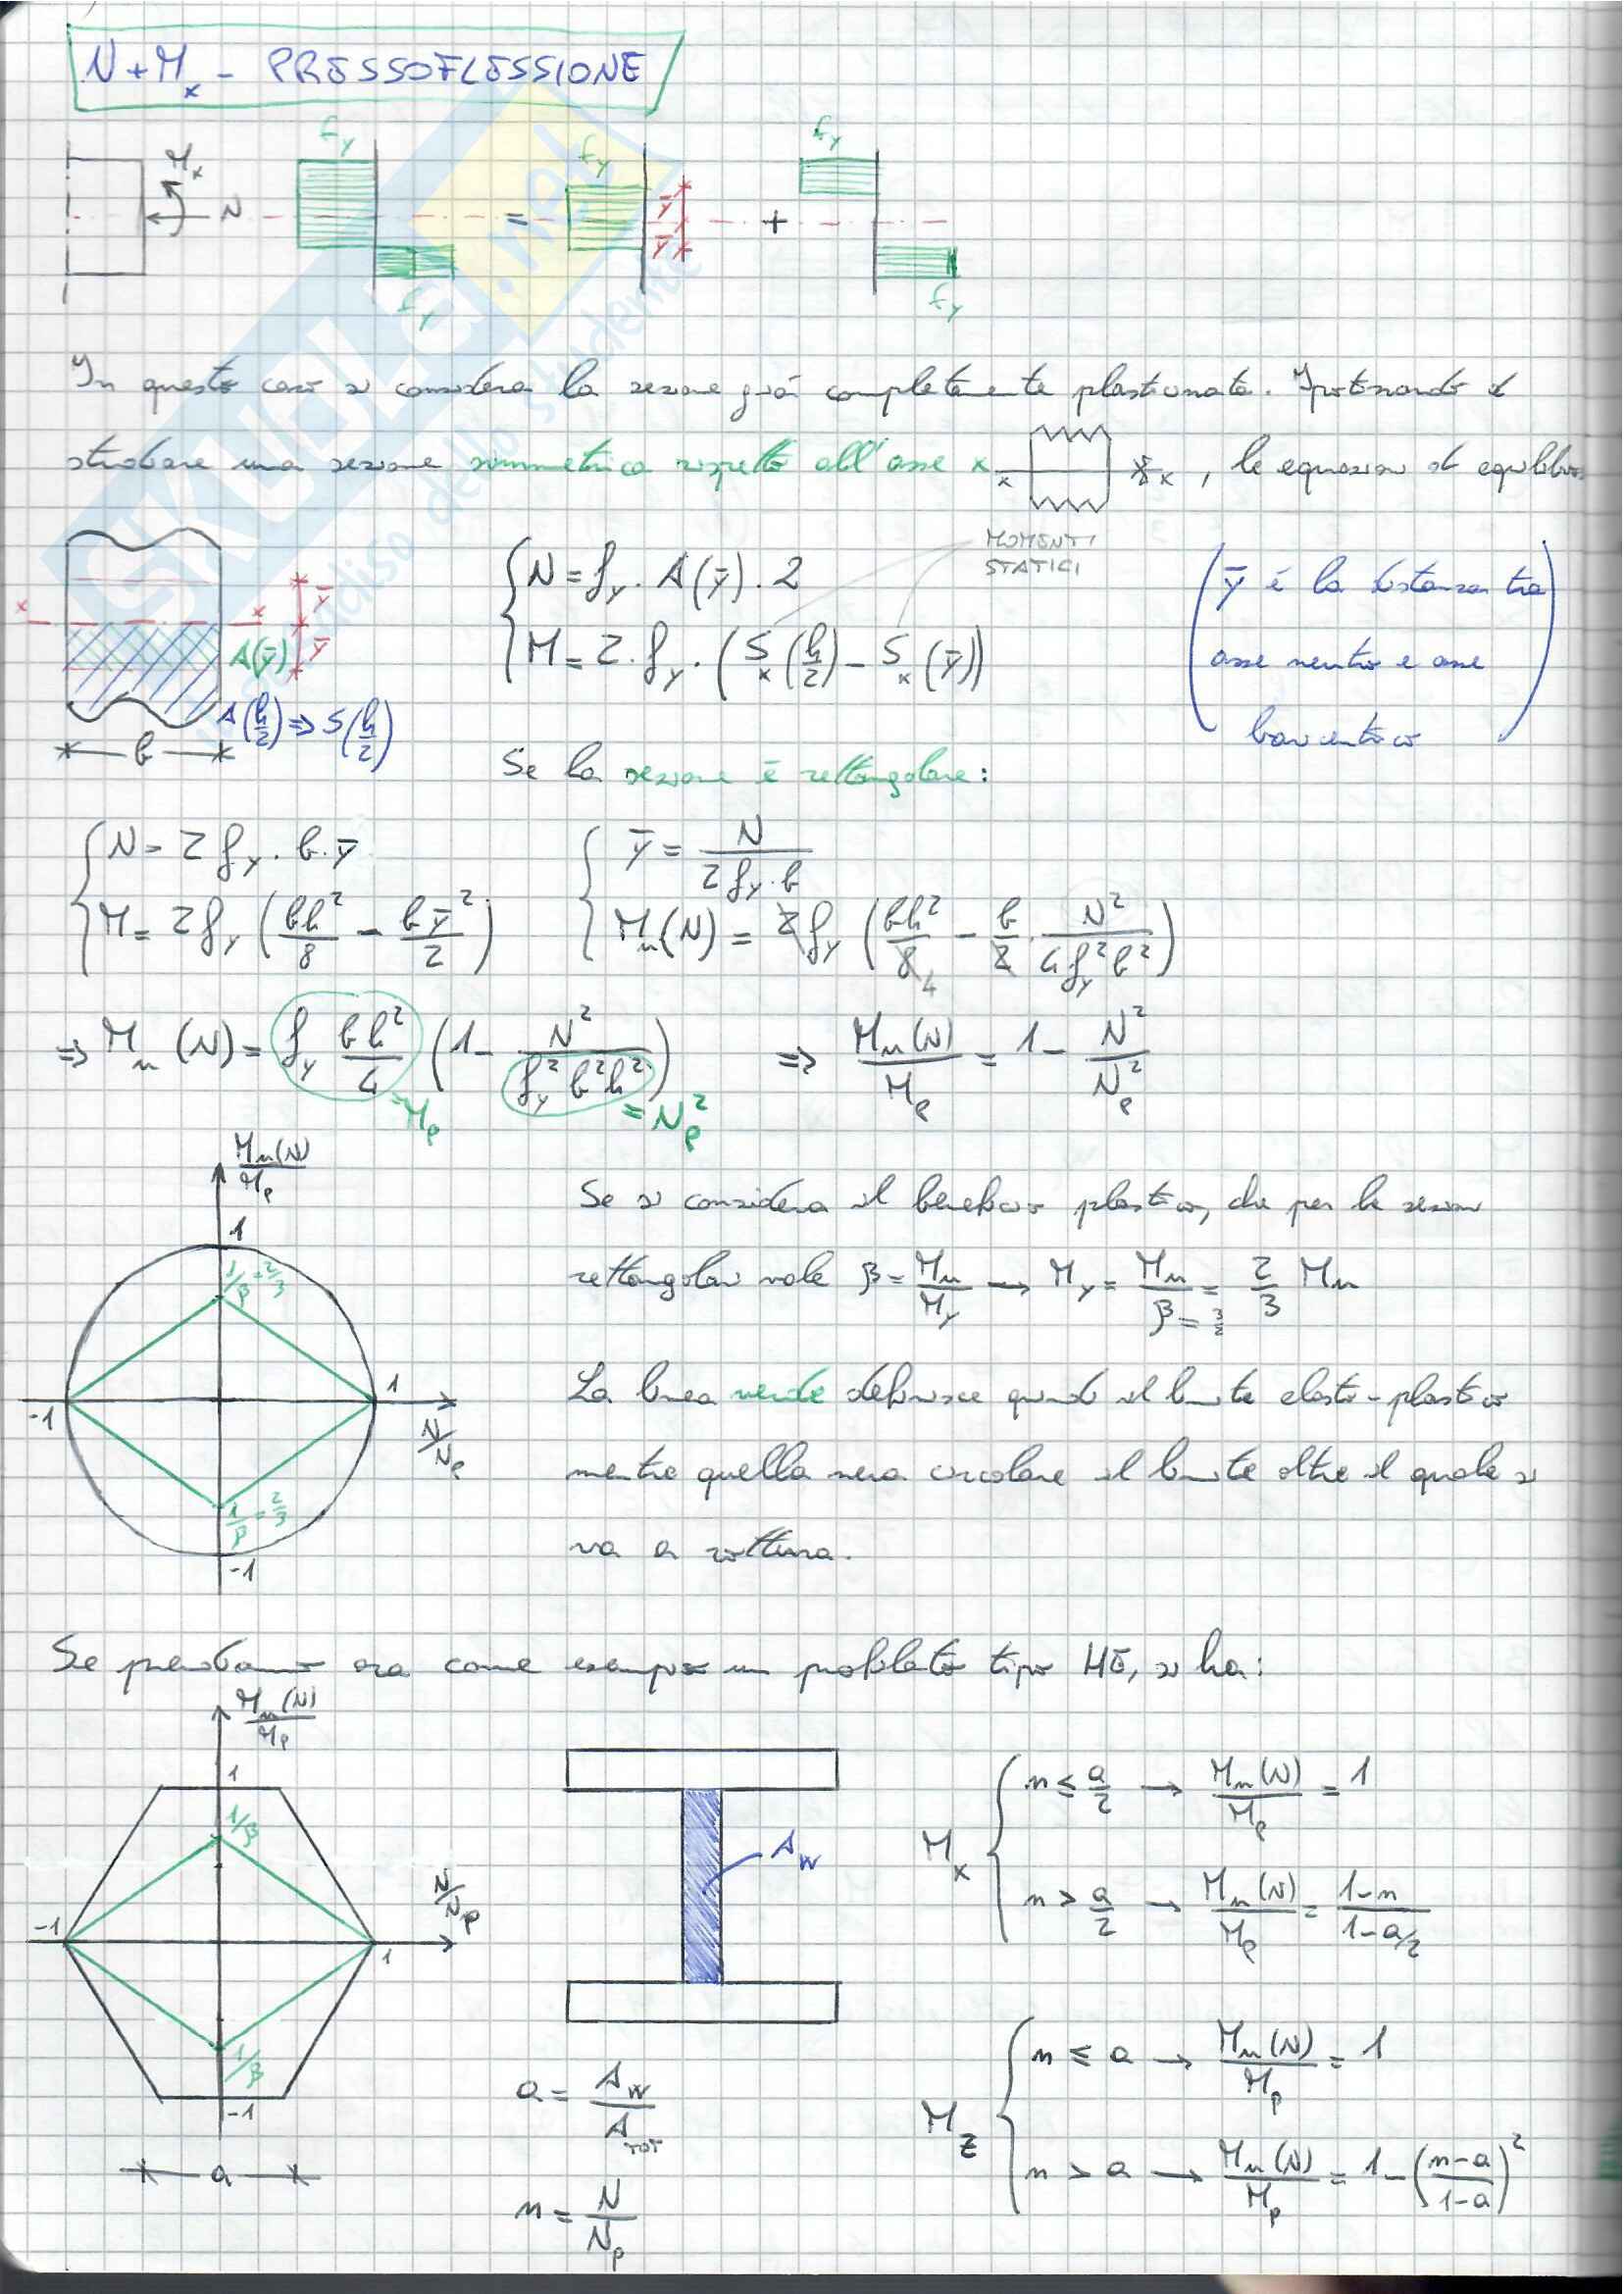 N + Mx - PRESSOFLESSIONE
fy fy fy
Mx N = ȳ ȳ +
fy fy
In questo caso si considera la sezione già completamente plasticizzata. Ipotizzando di
studiare una sezione simmetrica rispetto all'asse x x x, le equazioni di equilibrio
MOMENTI
STATICI
N = fy · A(ȳ) · 2
M = 2 · fy · (Sx(h/2) - Sx(ȳ))
(ȳ è la distanza tra
asse neutro e asse
baricentrico)
x x ȳ ȳ
A(ȳ)
A(h/2) => S(h/2)
b
Se la sezione è rettangolare:
N = 2 fy · b · ȳ
M = 2 fy (bh²/8 - bȳ²/2)
ȳ = N/(2 fy · b)
Mu(N) = 2 fy (bh²/8 4 - b/2 · N²/(4 fy² b²))
=> Mu(N) = fy bh²/4 (1 - N²/(fy² b² h²)) => Mu(N)/Mp = 1 - N²/Np²
= Mp = Np²
Mu(N)/Mp
1
1/β = 2/3
-1 1
N/Np
1/β = 2/3
-1
Se si considera il beneficio plastico, che per le sezioni
rettangolari vale β = Mu/My → My = Mu/β = 2/3 Mu
β = 3/2
La linea verde definisce quindi il limite elasto-plastico
mentre quella nera circolare il limite oltre il quale si
va a rottura.
Se prendiamo ora come esempio un profilato tipo HE, si ha:
Mu(N)/Mp
1
1/β
N/Np
-1 1
1/β
-1
a
Aw
a = Aw/ATOT
n = N/Np
Mx
n ≤ a/2 → Mu(N)/Mp = 1
n > a/2 → Mu(N)/Mp = (1-n)/(1-a/2)
Mz
n ≤ a → Mu(N)/Mp = 1
n > a → Mu(N)/Mp = 1 - ((n-a)/(1-a))²
SKUOLA.net
dello studente